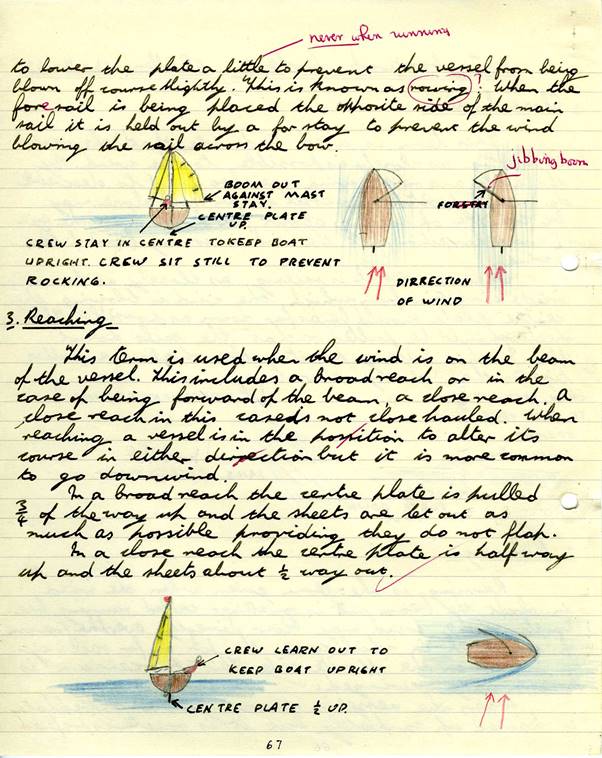 never when running
to lower the plate a little to prevent the vessel from being
blown off course slightly. This is known as rowing? When the
foresail is being placed the opposite side of the main
sail it is held out by a for stay to prevent the wind
blowing the sail across the bow.
jibbing boom
BOOM OUT
AGAINST MAST
STAY.
CENTRE PLATE
UP.
FORSTAY
CREW STAY IN CENTRE TO KEEP BOAT
UPRIGHT. CREW SIT STILL TO PREVENT
ROCKING.
DIRRECTION
OF WIND
3. Reaching
This term is used when the wind is on the beam
of the vessel. This includes a broad reach or in the
case of being forward of the beam, a close reach. A
close reach in this case is not close hauled. When
reaching a vessel is in the possition to alter its
course in either dirrection but it is more common
to go downwind.
In a broad reach the centre plate is pulled
3/4 of the way up and the sheets are let out as
much as possible providing they do not flap.
In a close reach the centre plate is half way
up and the sheets about 1/2 way out.
CREW LEARN OUT TO
KEEP BOAT UPRIGHT
CENTRE PLATE 1/2 UP.
67